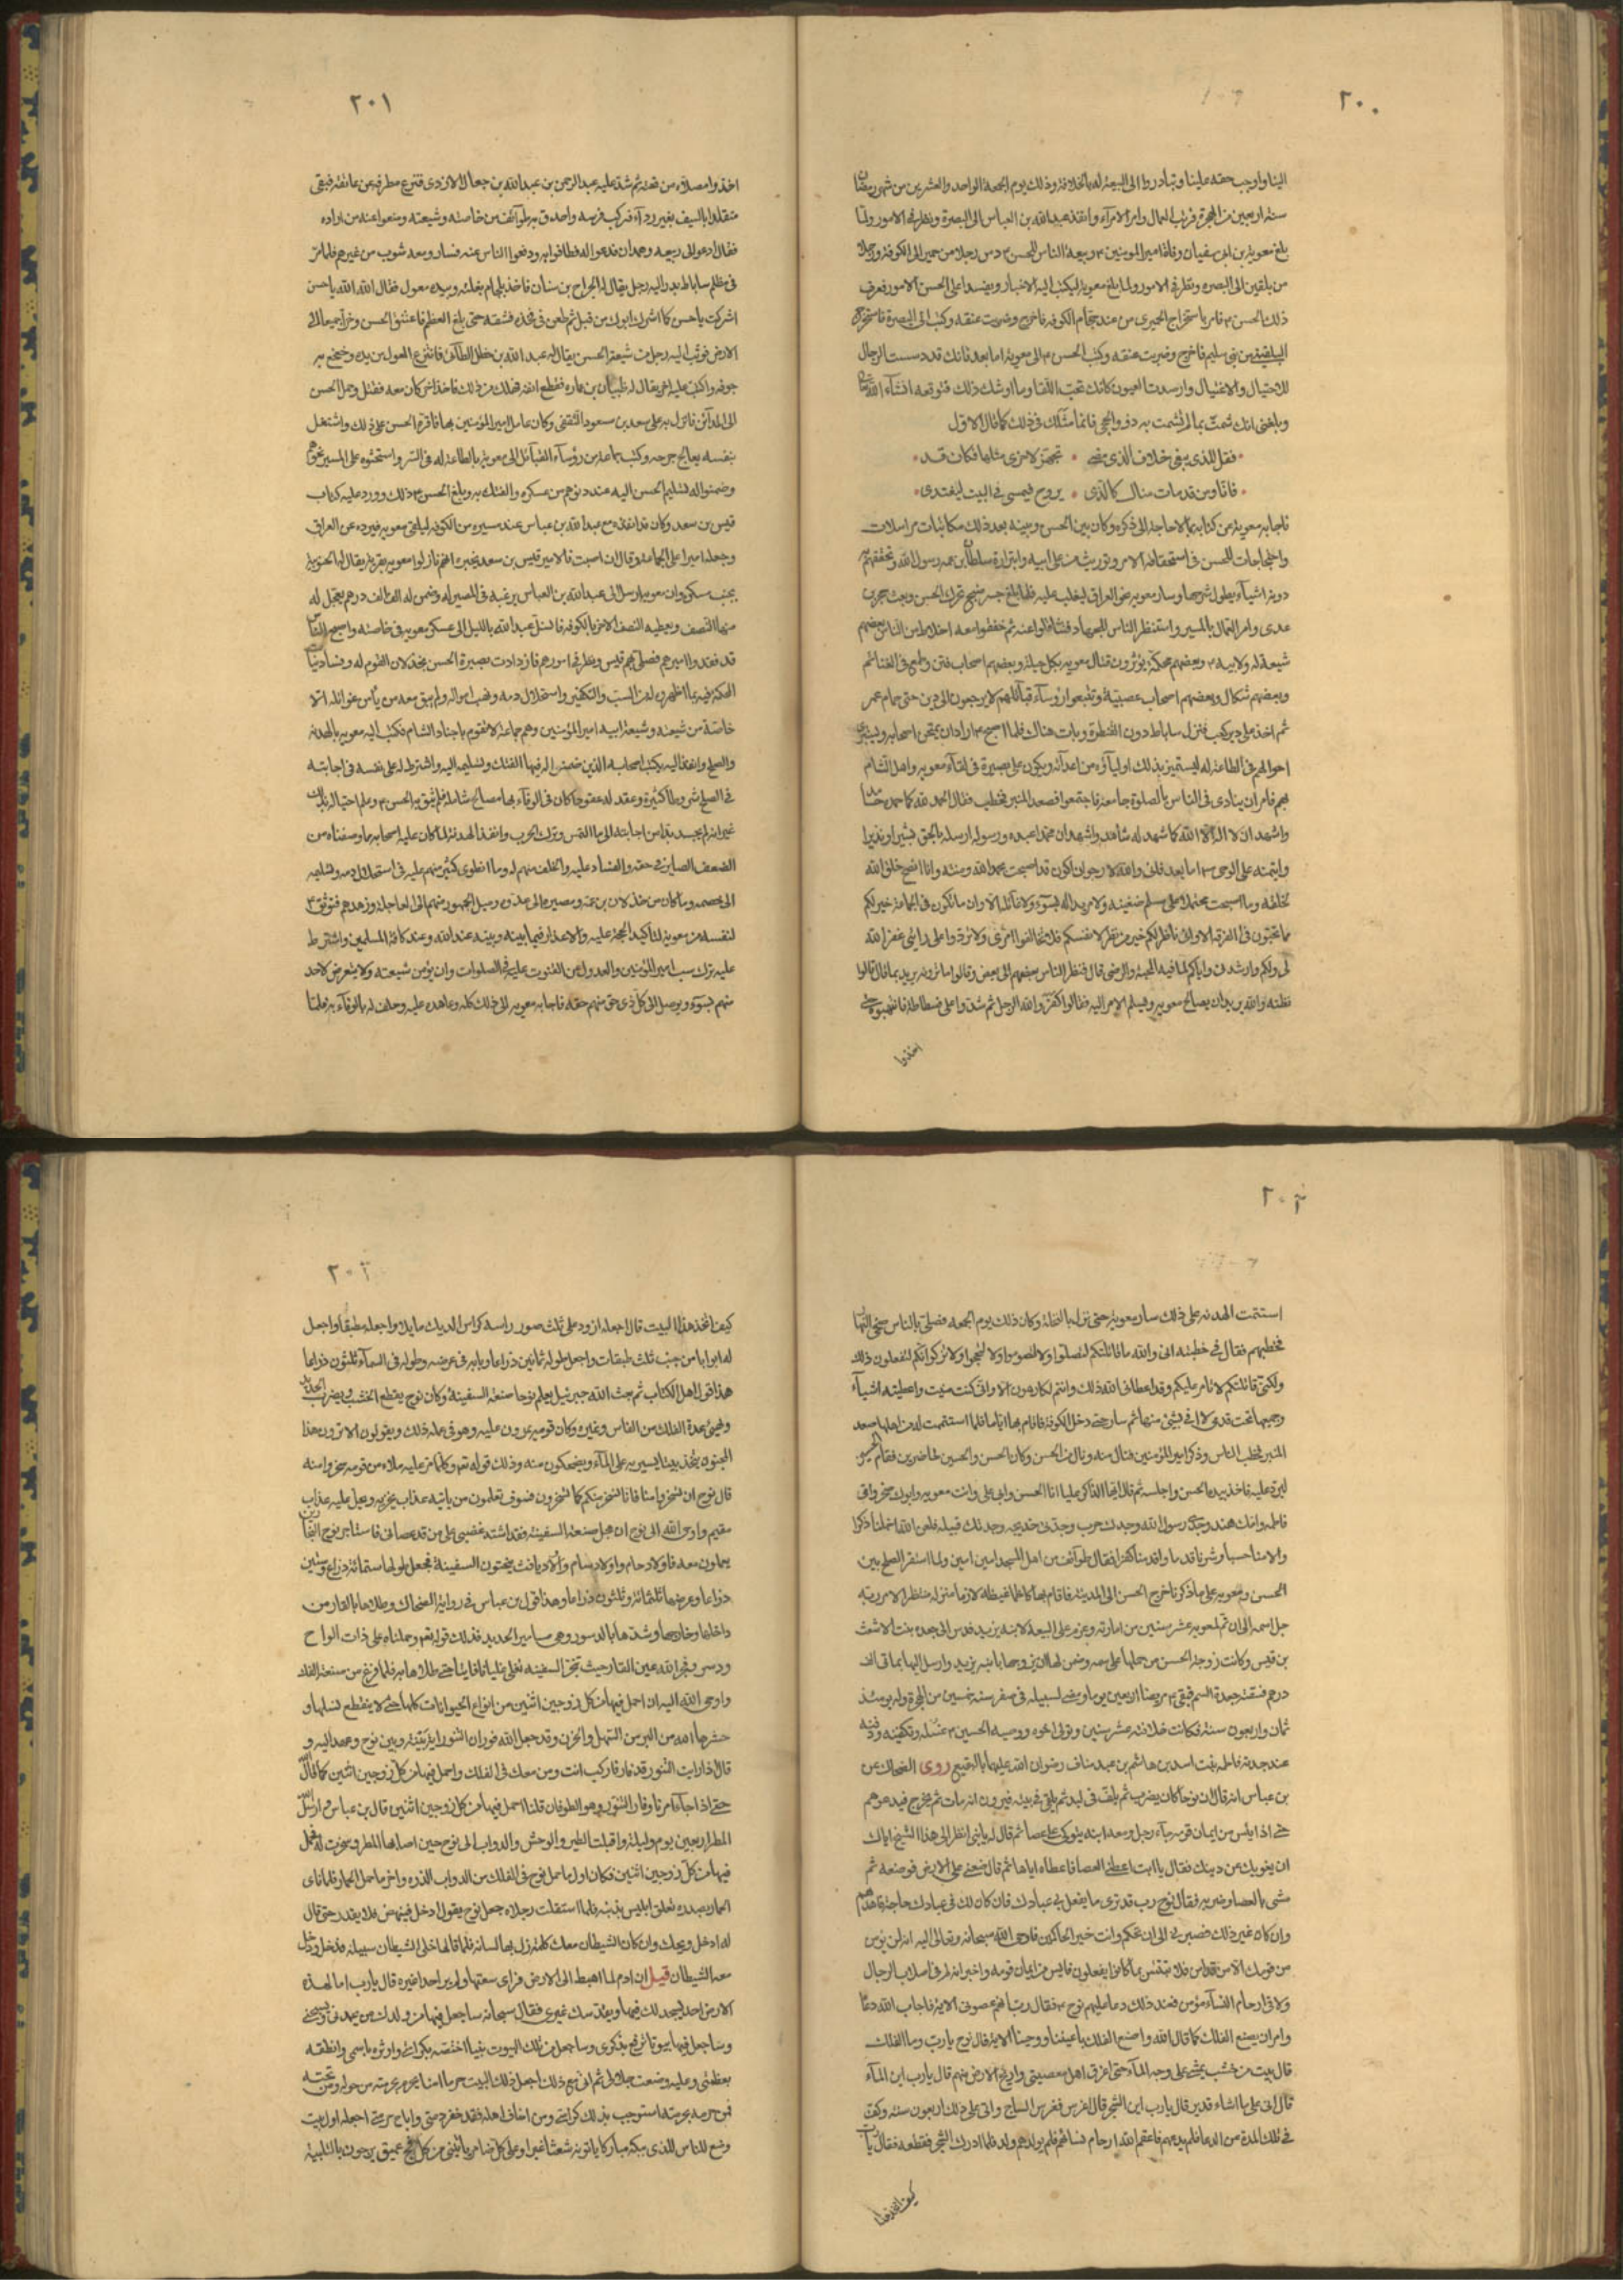 ٢٠٠
الينا واوجب حقه علينا وتبادروا الى البيعة له بالخلافة وذلك يوم الجمعة الواحد والعشرين من شهر رمضان
سنة اربعين من الهجرة فرتب العمال وامر الامرآء وانفذ عبد الله بن العباس الى البصرة ونظر فى الامور ولما
بلغ معوية بن ابى سفيان وفاة امير المومنين م وبيعة الناس للحسن م دس رجلا من حمير الى الكوفة ورجلا
من بلقين الى البصره ليكتب اليه الاخبار ويفسد على الحسن الامور فعرف
ذلك الحسن م فامر باستخراج الحميرى من عند حجام الكوفه فاخرج وضربت عنقه وكتب الى البصرة فاستخرج
البلقينى من بنى سليم فاخرج وضربت عنقه وكتب الحسن م الى معوية اما بعد فانك قد دسست الرجال
للاحتيال والاغتيال وارصدت العيون كانك تحب اللقا وما اوشك ذلك فتوقعه انشآء الله
وبلغنى انك شمتّ بما لم تشمت به ذو والحجى فانما مثلك فى ذلك كما قال الاول
فقل للذى يبغى خلاف الذى مضى • تجهّز لاخرى مثلها فكان قد
فانا ومن قد مات منا لكالذى • يروح فيمسى فى البيت ليغتدى
فاجابه معوية عن كتابه بما لا حاجة الى ذكره وكان بين الحسن وبينه بعد ذلك مكاتبات مراسلات
واحتجاجات للحسن فى استحقاقه الامر وتوثب من على ابيه وابتزازه سلطان بن عمه رسول الله وتحققهم به
دونه اشيآء يطول شرحها وسار معويه نحو العراق ليغلب عليه فلما بلغ جسر منبج تحرك الحسن وبعث حجر بن
عدى وامر العمال بالمسير واستنفر الناس للجهاد فتثاقلوا عنه ثم خفّوا معه اخلاط من الناس بعضهم
شيعة له ولابيه م وبعضهم محكمة يؤثرون قتال معويه بكل حيلة وبعضهم اصحاب فتن وطمع فى الغنائم
وبعضهم شكاك وبعضهم اصحاب عصبية اتبعوا رؤسآء قبائلهم لا يرجعون الى دين حتى حمام عمر
ثم اخذ على دير كعب فنزل ساباط دون القنطرة وبات هناك فلما اصبح م اراد ان يمتحن اصحابه ويستبرئ
احوالهم فى الطاعة له ليستميز بذلك اوليآؤه من اعدآئه ويكون على بصيرة فى لقآء معويه واهل الشام
بهم فامر ان ينادى فى الناس بالصلوة جامعة فاجتمعوا فصعد المنبر فخطب فقال الحمد لله كلما حمده حامد
واشهد ان لا اله الا الله كما شهد له شاهد واشهد ان محمدا عبده ورسوله ارسله بالحق بشيرا ونذيرا
وايتمنه على الوحى م اما بعد فانى والله لارجو ان اكون قد اصبحت بحمد الله ومنّه وانا انصح خلق الله
لخلقه وما اصبحت محتملا على مسلم ضغينة ولا مريدا له بسوء ولا غائلة الا وان ما تكرهون فى الجماعة خير لكم
مما تحبون فى الفرقة الا وانى ناظر لكم خير من نظركم لانفسكم فلا تخالفوا امرى ولا تردوا على رايى غفر الله
لى ولكم وارشدنى واياكم لما فيه المحبة والرضى قال فنظر الناس بعضهم الى بعض وقالوا ما ترونه يريد بما قال قالوا
نظنه والله يريد ان يصالح معويه ويسلم الامر اليه فقالوا كفر والله الرجل ثم شدوا على فسطاطه فانتهبوه حتى
اخذوا
٢٠١
اخذوا مصلاه من تحته ثم شد عليه عبد الرحمن بن عبد الله بن جعال الازدى فنزع مطرفه عن عاتقه فبقى
متقلدا بالسيف بغير ردآء فركب فرسه واحدق به طوائف من خاصته وشيعته ومنعوا عنه من اراده
فقال ادعو الى ربيعه وهمدان فدعوا له فطافوا به ودفعوا الناس عنه فسار ومعه شوب من غيرهم فلما مر
فى ظلم ساباط بدر اليه رجل يقال له الجراح بن سنان فاخذ بلجام بغلته وبيده معول فقال الله الله ياحسن
اشركت ياحسن كما اشرك ابوك من قبل ثم طعن فى فخذه فشقه حتى بلغ العظم فاعتنق الحسن وخرّا جميعا الى
الارض فوثب اليه رجل من شيعة الحسن يقال له عبد الله بن خطل الطآئى فانتزع المعول من يده وخضخض به
جوفه واكبّ عليه اخر يقال له ظبيان بن عماره فقطع انفه فهلك من ذلك فاخذ اخر كان معه فقتل وحمل الحسن
الى المدآئن فانزل به على سعد بن مسعود الثقفى وكان عامل امير المؤمنين بها فاقره الحسن على ذلك واشتغل
بنفسه يعالج جرحه وكتب جماعة من رؤسآء القبآئل الى معوية بالطاعة له فى السر واستحثوه على المسير نحوهم
وضمنوا له تسليم الحسن اليه عند دنوهم من عسكره والفتك به وبلغ الحسن م ذلك وورد عليه كتاب
قيس بن سعد وكان قد انفذه مع عبد الله بن عباس عند مسيره من الكوفه ليلقى معويه فيرده عن العراق
وجعله اميرا على الجماعة وقال ان اصبت فالامير قيس بن سعد يخبره انهم نازلوا معويه بقرية يقال لها الحبوبية
بجنب مسكن وان معويه ارسل الى عبد الله بن العباس يرغبه فى المصير اليه وضمن له الف الف درهم يعجل له
منها النصف ويعطيه النصف الاخر بالكوفه فانسل عبد الله بالليل الى عسكر معويه فى خاصته واصبح الناس
قد فقدوا اميرهم فصلى بهم قيس ونظر فى امورهم فازدادت بصيرة الحسن بخذلان القوم له وفساد نيات
المحكمة فيه بما اظهروه له من السبّ والتكفير واستحلال دمه ونهب امواله ولم يبق معه من يأمن غوائله الا
خاصة من شيعته وشيعة ابيه امير المؤمنين وهم جماعة لا تقوم باجناد الشام فكتب اليه معويه بالهدنة
والصلح وانفذ اليه بكتب اصحابه الذين ضمنوا له فيها الفتك به وتسليمه اليه واشترط له على نفسه فى اجابته
فى الصلح شروطا كثيرة وعقد له عقودا كان فى الوفآء بها مصالح شاملة فلم يثق به الحسن م وعلم احتياله بذلك
غير انه لم يجد بدا من اجابته الى ما التمس وترك الحرب وانفاذ الهدنة لما كان عليه اصحابه مما وصفناه من
الضعف البصاير فى حقه والفساد عليه والخلف منهم له وما انطوى كثير منهم عليه فى استحلال دمه وتسليمه
الى خصمه وما كان من خذلان بن عمه ومصيره الى عدوه وميل الجمهور منهم الى العاجلة وزهدهم فتوثق م
لنفسه من معوية لتأكيد الحجة عليه والاعذار فيما بينه وبينه عند الله وعند كافة المسلمين واشترط
عليه ترك سب امير المؤمنين والعدول عن القنوت عليه فى الصلوات وان يؤمن شيعته ولا يتعرض لاحد
منهم بسوء ويوصل الى كل ذى حق منهم حقه فاجابه معويه الى ذلك كله وعاهده عليه وحلف له بالوفآء به فلما
٢٠٢
استتمت الهدنه على ذلك سار معوية حتى نزل بالنخلة وكان ذلك يوم الجمعه فصلى بالناس ضحى النهار
فخطبهم فقال فى خطبته انى والله ما قاتلتكم لتصلوا ولا لتصوموا ولا لتحجوا ولا لتزكوا انكم لتفعلون ذلك
ولكنى قاتلتكم لاتامر عليكم وقد اعطانى الله ذلك وانتم لكارهون الا وانى كنت منيت واعطيته اشيآء
وجميعها تحت قدمى لا افى بشئ منها ثم سار حتى دخل الكوفة فاقام بها اياما فلما استتمت البيعة له من اهلها صعد
المنبر فخطب الناس وذكر امير المؤمنين فنال منه ونال من الحسن وكان الحسن والحسين حاضرين فقام الحسين
ليرد عليه فاخذ بيده الحسن واجلسه ثم قال ايها الذاكر عليا انا الحسن وابى على وانت معويه وابوك صخر وامى
فاطمه وامك هند وجدّى رسول الله وجدك حرب وجدتى خديجه وجدتك قبيله فلعن الله اخملنا ذكرا
والامنا حسبا وشرنا قدما واقدمنا كفرا فقال طوآئف من اهل المسجد امين امين ولما استقر الصلح بين
الحسن ومعويه على ما ذكرنا خرج الحسن الى المدينة فاقام بها كاظما غيظه لازما منزله منتظرا لامر ربه
جل اسمه الى ان تم لمعويه عشر سنين من امارته وعزم على البيعة لابنه يزيد فدس الى جعده بنت الاشعث
بن قيس وكانت زوجة الحسن من حملها على سمه وضمن لها ان يزوجها بابنه يزيد وارسل اليها بمائة الف
درهم فسقته جعدة السم فبقى م مريضا اربعين يوما ومضى لسبيله فى صفر سنة خمسين من الهجرة وله يومئذ
ثمان واربعون سنة فكانت خلافته عشر سنين وتولى اخوه ووصيه الحسين م غسله وتكفينه ودفنه
عند جدته فاطمه بنت اسد بن هاشم بن عبد مناف رضوان الله عليها بالبقيع روى الضحاك عن
بن عباس انه قال ان نوحا كان يضرب ثم يلف فى لبد ثم يلقى فى بيته فيرون انه مات ثم يخرج فيدعوهم
حتى اذا يئس من ايمان قومه جآء رجل ومعه ابنه يتوكى على عصا ثم قال له يا بنى انظر الى هذا الشيخ اياك
ان يغويك عن دينك فقال يا ابت اعطنى العصا فاعطاه اياها ثم قال ضعنى على الارض فوضعه ثم
مشى بالعصا وضربه فقال نوح رب قد ترى ما يفعل بى عبادك فان كان لك فى عبادك حاجة فاهدهم
وان كان غير ذلك فصبرنى الى ان تحكم وانت خير الحاكمين فاوحى الله سبحانه وتعالى اليه انه لن يؤمن
من قومك الا من قد امن فلا تبتئس بما كانوا يفعلون فايس من ايمان قومه واخبر انه لم يبق فى اصلاب الرجال
ولا فى ارحام النسآء مؤمن فعند ذلك دعا عليهم نوح م فقال رب انهم عصونى الاية فاجاب الله دعآه
وامر ان يصنع الفلك كما قال الله واصنع الفلك باعيننا ووحينا الاية قال نوح يا رب وما الفلك
قال بيت من خشب يجرى على وجه المآء حتى اغرق اهل معصيتى واريح الارض منهم قال يا رب اين المآء
قال انى على ما اشاء قدير قال يا رب اين الشجر قال اغرس فغرس الساج واتى على ذلك اربعون سنه وكف
فى تلك المدة من الدعا فلم يدعهم فاعقم الله ارحام نسائهم فلم يولد لهم ولد فلما ادرك الشجر فقطعه فقال يا رب
كيف اتخذ هذا
كيف اتخذ هذا البيت قال اجعله ازور على ثلث صور راسه كراس الديك مايلا واجعله مطبقا واجعل
له ابوابا من جنبه ثلث طبقات واجعل طوله ثمانين ذراعا وبابه فى عرضه وطوله فى السمآء ثلثون ذراعا
هذا قول اهل الكتاب ثم بعث الله جبرئيل يعلم نوحا صنعة السفينة وكان نوح يقطع الخشب ويضرب الحديد
ويهيئ عدة الفلك من القاس وغيره وكان قومه يمرون عليه وهو فى عمله ذلك ويقولون الا ترون هذا
المجنون يتخذ بيتا يسير به على المآء ويضحكون منه وذلك قوله تع وكلما مر عليه ملاء من قومه سخروا منه
قال نوح ان تسخروا منا فانا نسخر منكم كما تسخرون فسوف تعلمون من ياتيه عذاب يخزيه ويحل عليه عذاب
مقيم واوحى الله الى نوح ان عجل صنعة السفينة فقد اشتد غضبى على من قد عصانى فاستاجر نوح النجارين
يعملون معه فاولاد حام واولاد سام واولاد يافث ينحتون السفينة فجعل طولها ستمائة ذراع وستين
ذراعا وعرضها ثلثمائة وثلثون ذراعا وهذا قول بن عباس فى رواية الضحاك وطلاها بالقار من
داخلها وخارجها وشدها بالدسور وهى مسامير الحديد فذلك قوله تع وحملناه على ذات الواح
ودسر وفجر الله عين القار حيث تنجر السفينه تغلى غليانا قايما حتى طلاها به فلما فرغ من صنعة الفلك
واوحى الله اليه ان احمل فيها من كل زوجين اثنين من انواع الحيوانات كلها حتى لا ينقطع نسلها و
حشرها الله من البر من السهل والحزن وقد جعل الله فوران التنور اية بينه وبين نوح وعهد اليه و
قال اذا رايت التنور قد فار فاركب انت ومن معك فى الفلك واحمل فيها من كل زوجين اثنين كما قال
حتى اذا جآء امرنا وفار التنور وهو الطوفان قلنا احمل فيها من كل زوجين اثنين قال بن عباس م ارسل الله
المطر اربعين يوم وليلة واقبلت الطير والوحش والدواب الى نوح حين اصابها المطر وسخرت له فحمل
فيها من كل زوجين اثنين فكان اول ما حمل نوح فى الفلك من الدواب الذره واخر ما حمل الحمار فلما اتى
الحمار بصدره تعلق ابليس بذنبه فلما استقلت رجلاه جعل نوح يقول ادخل فينهض فلا يقدر حتى قال
له ادخل ويحك وان كان الشيطان معك كلمة زل بها لسانه فلما قالها خلى الشيطان سبيله فدخل ودخل
معه الشيطان قيل ان ادم لما اهبط الى الارض فراى سعتها ولم ير احدا غيره قال يا رب اما لهذه
الارض احد ليسجد لك فيها ويقدسك غيرى فقال سبحانه ساجعل فيها من ولدك من يعبدنى ويسبحنى
وساجعل فيها بيوتا ترفع بذكرى وساجعل من تلك البيوت بيتا اختصه بكرامتى واوثره باسمى وانطقه
بعظمتى وعليه وضعت جلالى ثم انى مع ذلك اجعل ذلك البيت حرما امنا يحرم بحرمته من حوله ومن تحته
فمن حرمه بحرمته استوجب بذلك كرامتى ومن اخاف اهله فقد خفر ذمتى واباح حرمتى اجعله اول بيت
وضع للناس للذى ببكة مباركا ياتونه شعثا غبرا وعلى كل ضامر ياتين من كل فج عميق يرجون بالتلبية